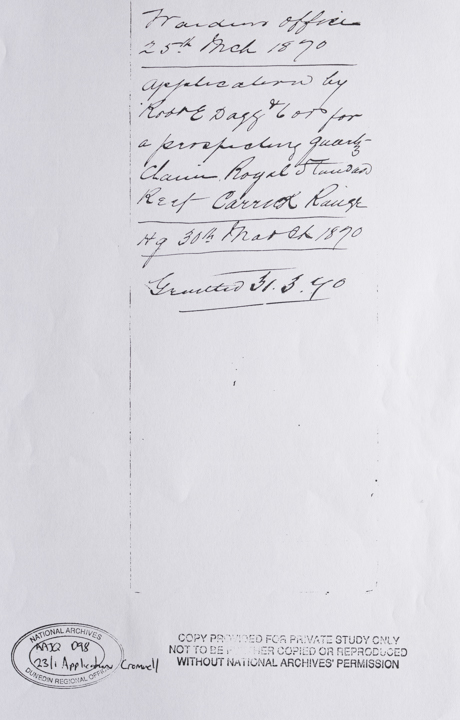 Wardens office
25th Mch 1870
application by
Robt E Dagg & 6 ors for
a prospecting quartz
Claim Royal Standard
Reef Carrick Range
Hg 30th March 1870
Granted 31.3.70
NATIONAL ARCHIVES
D98
23/1 Applications Cromwell
DUNEDIN REGIONAL OFFICE
COPY PROVIDED FOR PRIVATE STUDY ONLY
NOT TO BE FURTHER COPIED OR REPRODUCED
WITHOUT NATIONAL ARCHIVES' PERMISSION